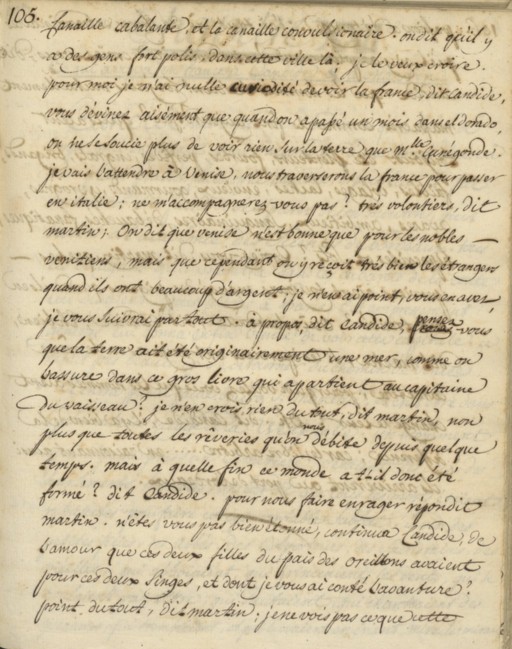 105.
Canaille cabalante, et la canaille convulsionaire. on dit qu'il y
a des gens fort polis dans cette ville là; je le veux croire.
pour moi je n'ai nulle curiosité de voir la france, dit Candide,
vous devinez aisément que quand on a passé un mois dans eldorado,
on ne se soucie plus de voir rien sur la terre que m.lle Cunégonde.
je vais l'attendre à Venise, nous traverserons la france pour passer
en italie; ne m'accompagnerez-vous pas? très volontiers, dit
martin; On dit que venise n'est bonne que pour les nobles
venitiens, mais que cependant on y reçoit très bien les étrangers
quand ils ont beaucoup d'argent; je n'en ai point, vous en avez,
je vous suivrai partout. à propos, dit Candide, pensez vous
que la terre ait été originairement une mer, comme on
l'assure dans ce gros livre qui apartient au capitaine
du vaisseau? je n'en crois rien du tout, dit martin, non
plus que toutes les rêveries qu'on nous débite depuis quelque
temps. mais à quelle fin ce monde a t'il donc été
formé? dit Candide. pour nous faire enrager répondit
martin. n'êtes vous pas bien étonné, continua Candide, de
l'amour que ces deux filles du païs des oreillons avaient
pour ces deux singes, et dont je vous ai conté l'avanture?
point du tout, dit martin; je ne vois pas ce que cette